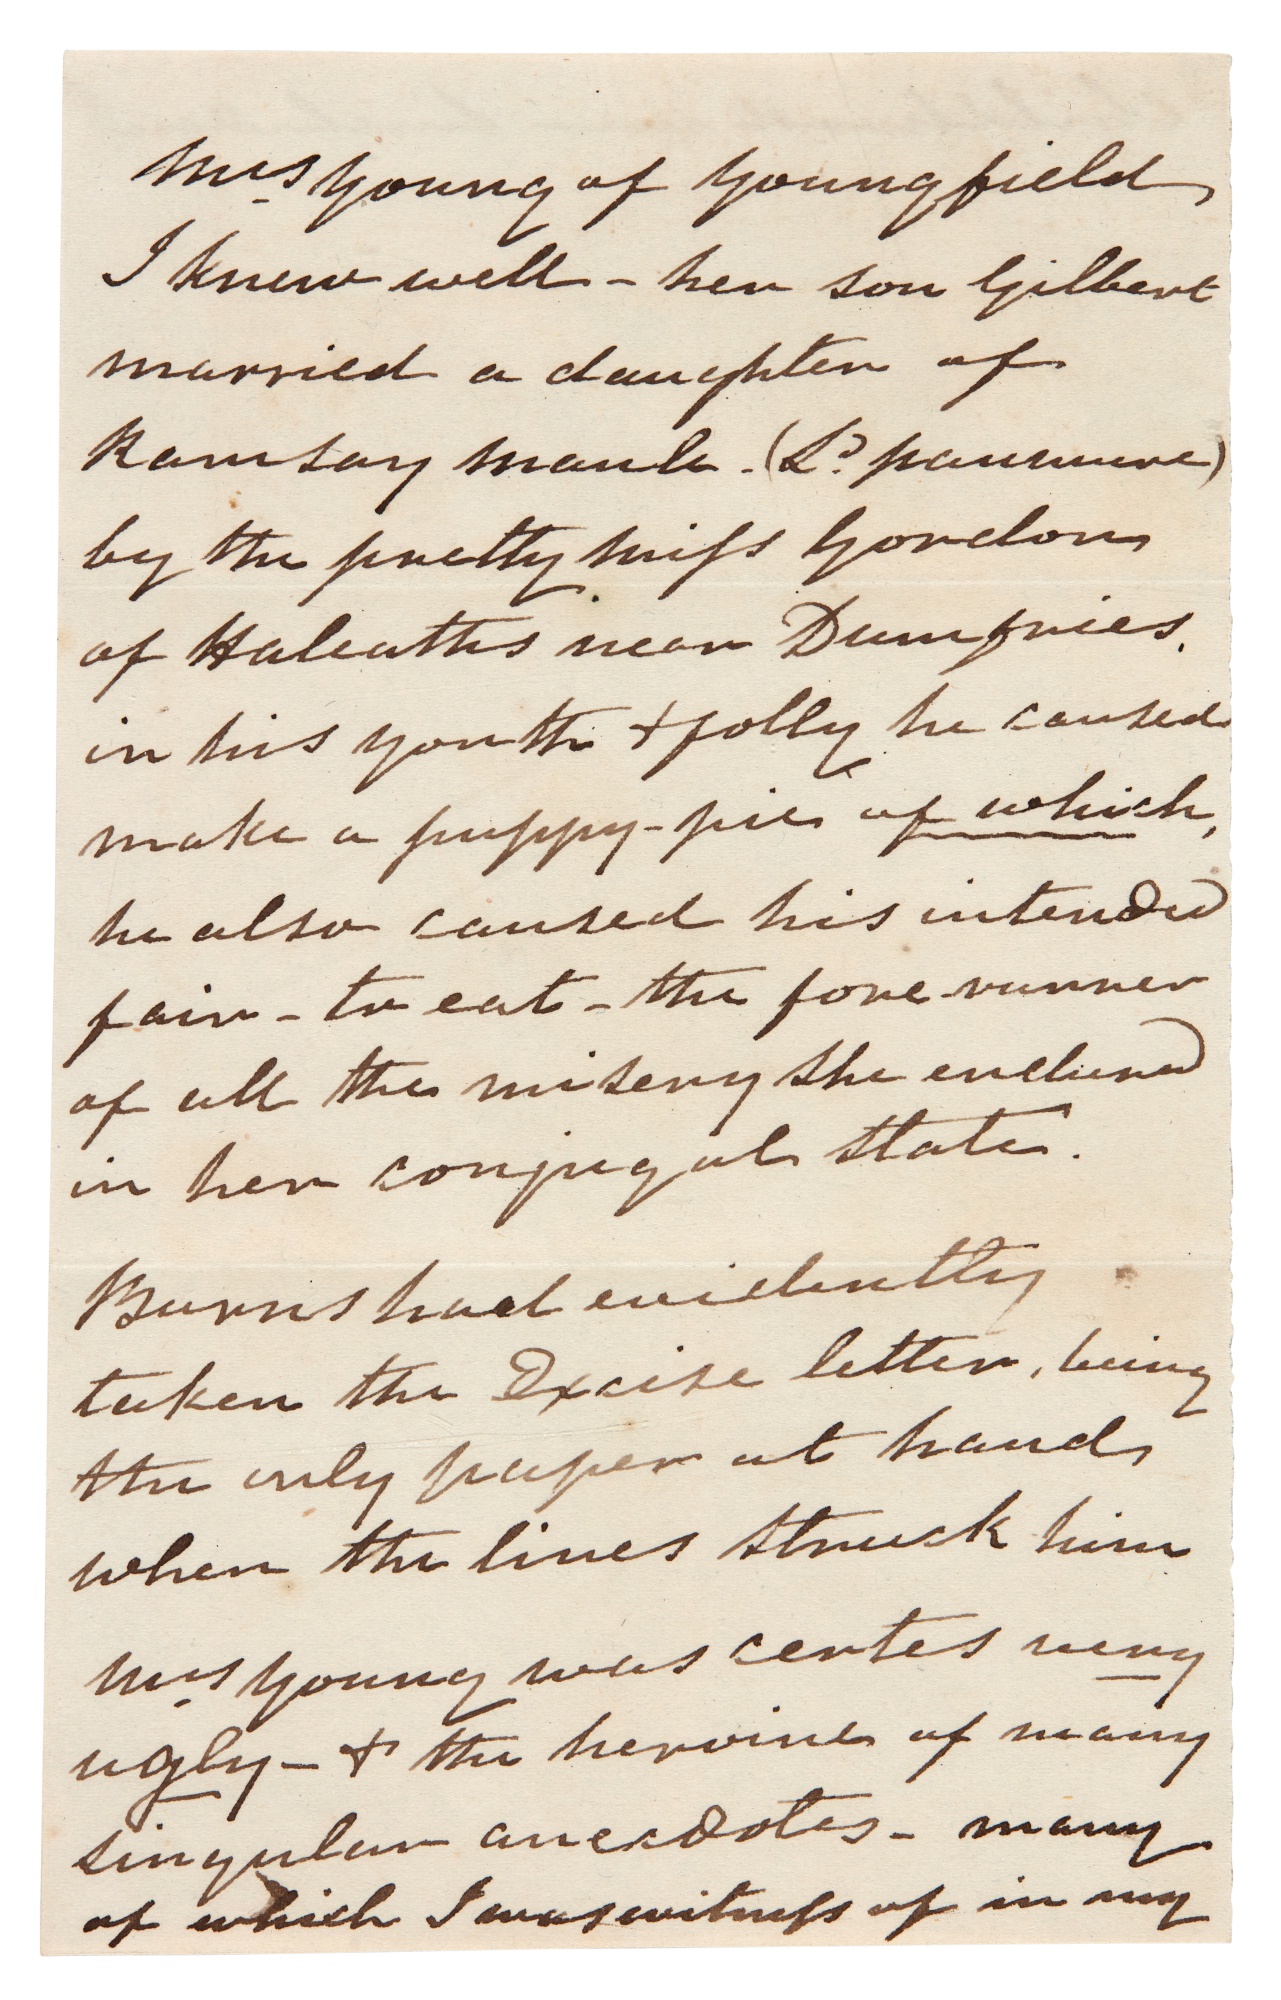 Mrs Young of Youngfield,
I knew well - her son Gilbert
married a daughter of
Ramsay Maule - (Ld. panmure)
by the pretty Miss Gordon,
of Haleaths near Dumfries.
in his youth & folly he caused
make a puppy-pie of which,
he also caused his intended
fair - to eat - the fore-runner
of all the misery she endured
in her conjugal state.
Burns had evidently
taken the Excise letter, being
the only paper at hand,
when the lines struck him
Mrs Young was certes very
ugly - & the heroine of many
singular anecdotes - many
of which I was witness of in my